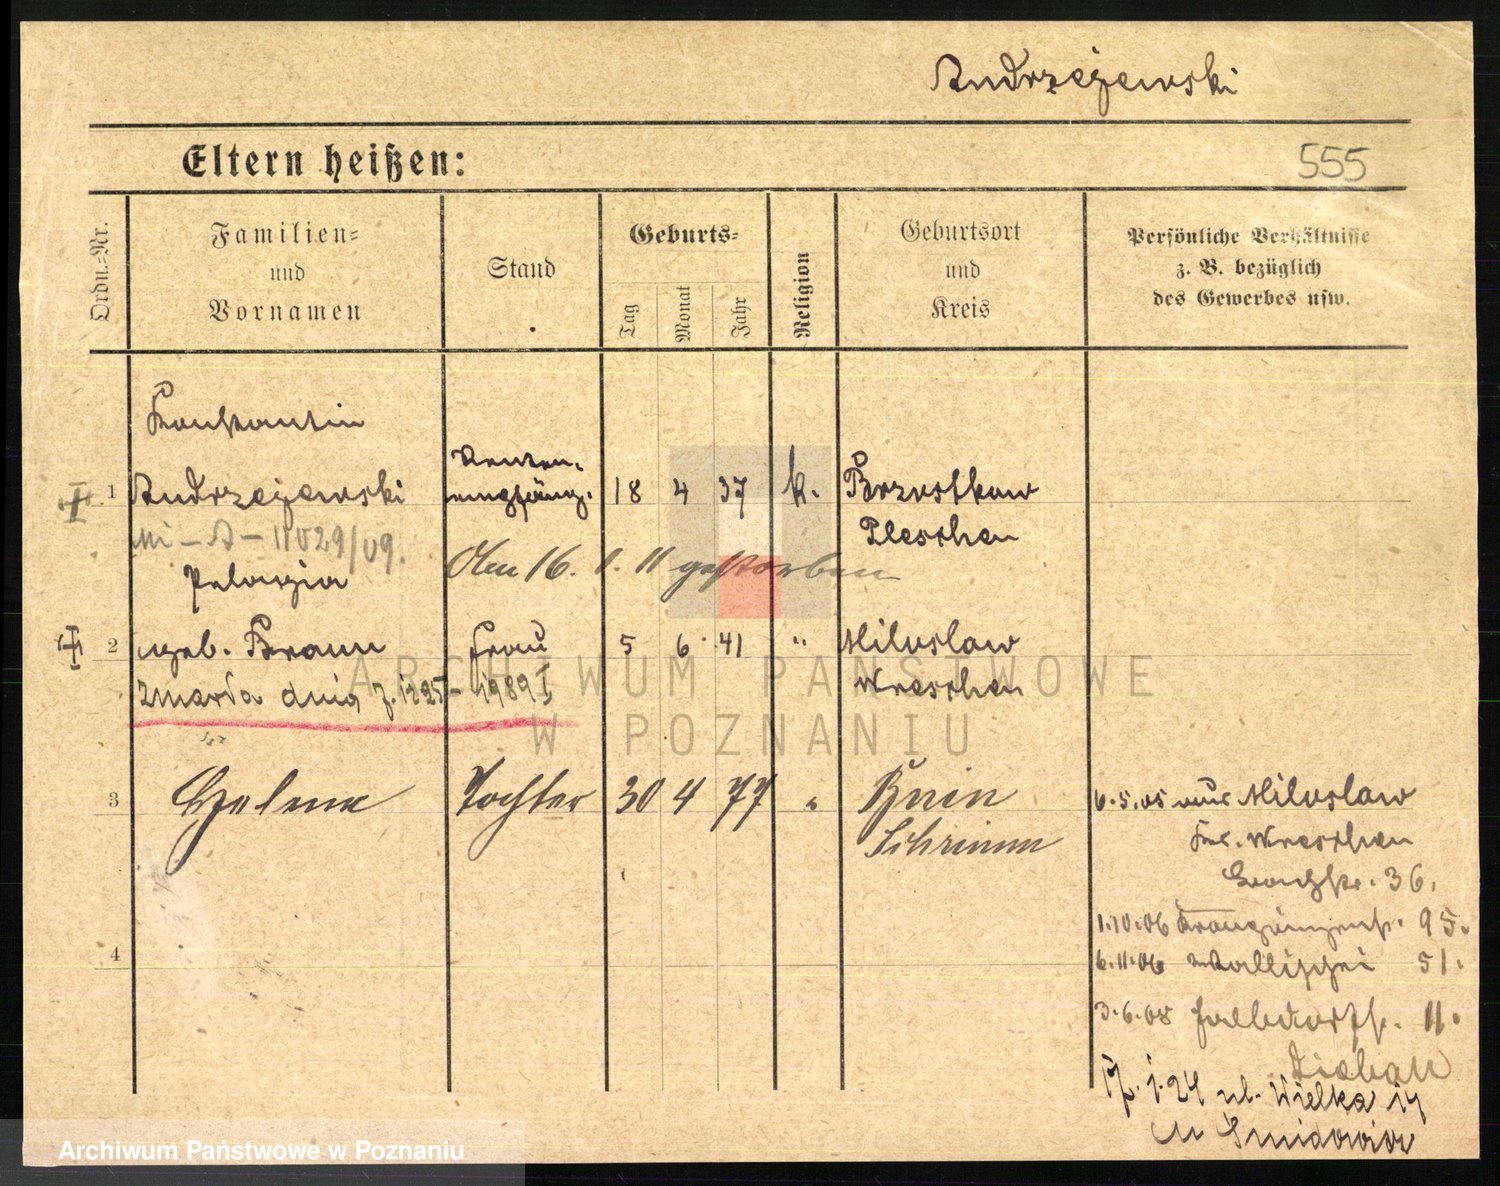 Andrzejewski
Eltern heißen:
555
Ordn.-Nr.
Familien-
und
Vornamen
Stand
Geburts-
Tag
Monat
Jahr
Religion
Geburtsort
und
Kreis
Persönliche Verhältnisse
z. B. bezüglich
des Gewerbes usw.
Konstantin
1 Andrzejewski Renten-
empfäng. 18 4 37 k. Brzostkow
Pleschen
Mi-A-11029/09.
Am 16. 1. 11 gestorben
Pelagia
2 geb. Braun Frau 5 6 41 " Miloslaw
Wreschen
zmarła dnia 7. 12 25 - 1989 I
3 Helene Tochter 30 4 77 " Bnin
Schrimm
6.5.05 aus Miloslaw
Kr. Wreschen
36.
1.10.06 95.
6.11.06 Wallischei 51.
3.6.08 11.
17. 1. 24 ul. Wielka 14
4
ARCHIWUM PAŃSTWOWE
W POZNANIU
Archiwum Państwowe w Poznaniu